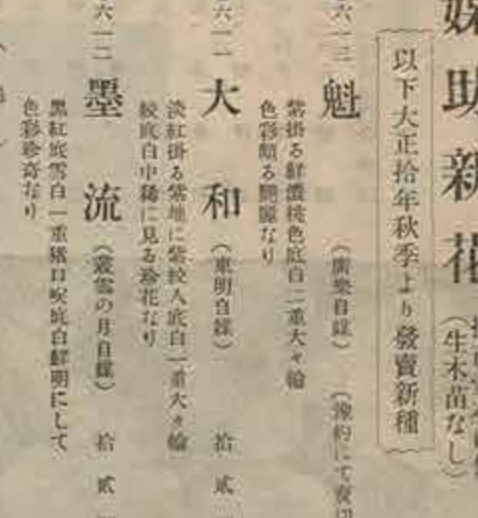 助新花
(生木苗なし)
以下大正拾年秋季より發賣新種
六一三 魁 (廣樂自錄) (豫約にて
紫掛る鮮濃桃色底白一重大々輪
色彩頗る艶麗なり
六一一 大和 (東明自錄) 拾貳
淡紅掛る紫地に紫絞入底白一重大々輪
絞底白中稀に見る珍花なり
六一二 墨流 (叢雲の月自錄) 拾貳
黒紅底雪白一重猪口咲底白鮮明にして
色彩珍奇なり